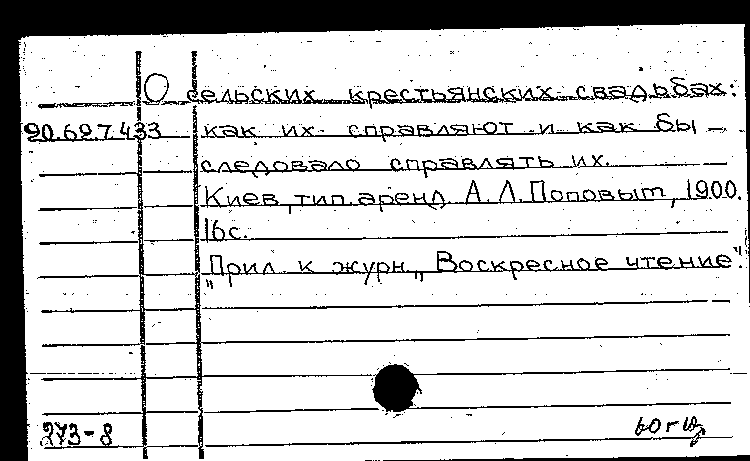 О сельских крестьянских свадьбах:
90.697.433 как их справляют и как бы
следовало справлять их.
Киев, тип. аренд. А. Л. Поповым, 1900.
16 с.
"Прил. к журн. „Воскресное чтение".
273-8